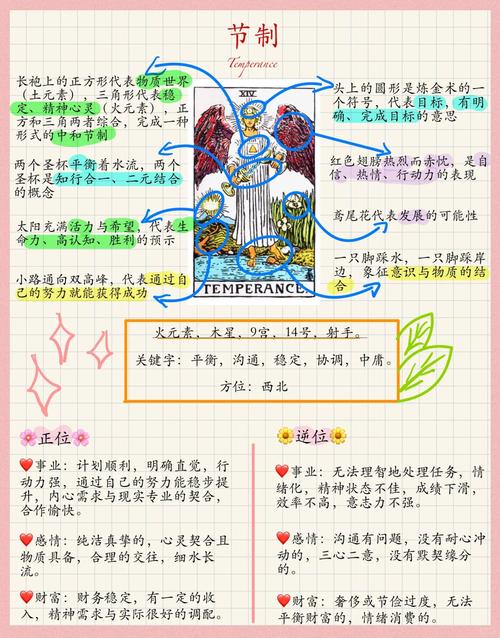 节制
Temperance
长袍上的正方形代表物质世界
（土元素），三角形代表稳
定、精神心灵（火元素），正
方和三角两者综合，完成一种
形式的中和节制
两个圣杯平衡着水流，两个
圣杯是知行合一、二元结合
的概念
太阳充满活力与希望，代表生
命力、高认知、胜利的预示
小路通向双高峰，代表通过自
己的努力就能获得成功
XIV
TEMPERANCE
头上的圆形是炼金术的一
个符号，代表目标，有明
确、完成目标的意思
红色翅膀热烈而赤忱，是自
信、热情、行动力的表现
鸢尾花代表发展的可能性
一只脚踩水，一只脚踩岸
边，象征意识与物质的结
合
火元素，木星，9宫，14号，射手。
关键字：平衡，沟通，稳定，协调，中庸。
方位：西北
正位
事业：计划顺利，明确直觉，行
动力强，通过自己的努力能稳步提
升，内心需求与现实专业的契合，
合作愉快。
感情：纯洁真挚的，心灵契合且
物质具备，合理的交往，细水长
流。
财富：财务稳定，有一定的收
入，精神需求与实际很好的调配。
逆位
事业：无法理智地处理任务，情
绪化，精神状态不佳，成绩下滑，
效率不高，意志力不强。
感情：沟通有问题，没有耐心冲
动的，三心二意，没有默契缘分
的。
财富：奢侈或节俭过度，无法
平衡财富的，情绪消费的。